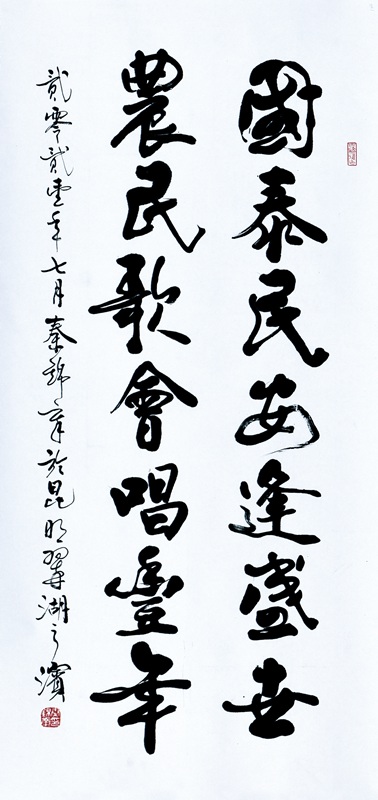 國泰民安逢盛世
農民歌會唱豐年
貳零貳壹年七月秦錦章於昆明翠湖之濱